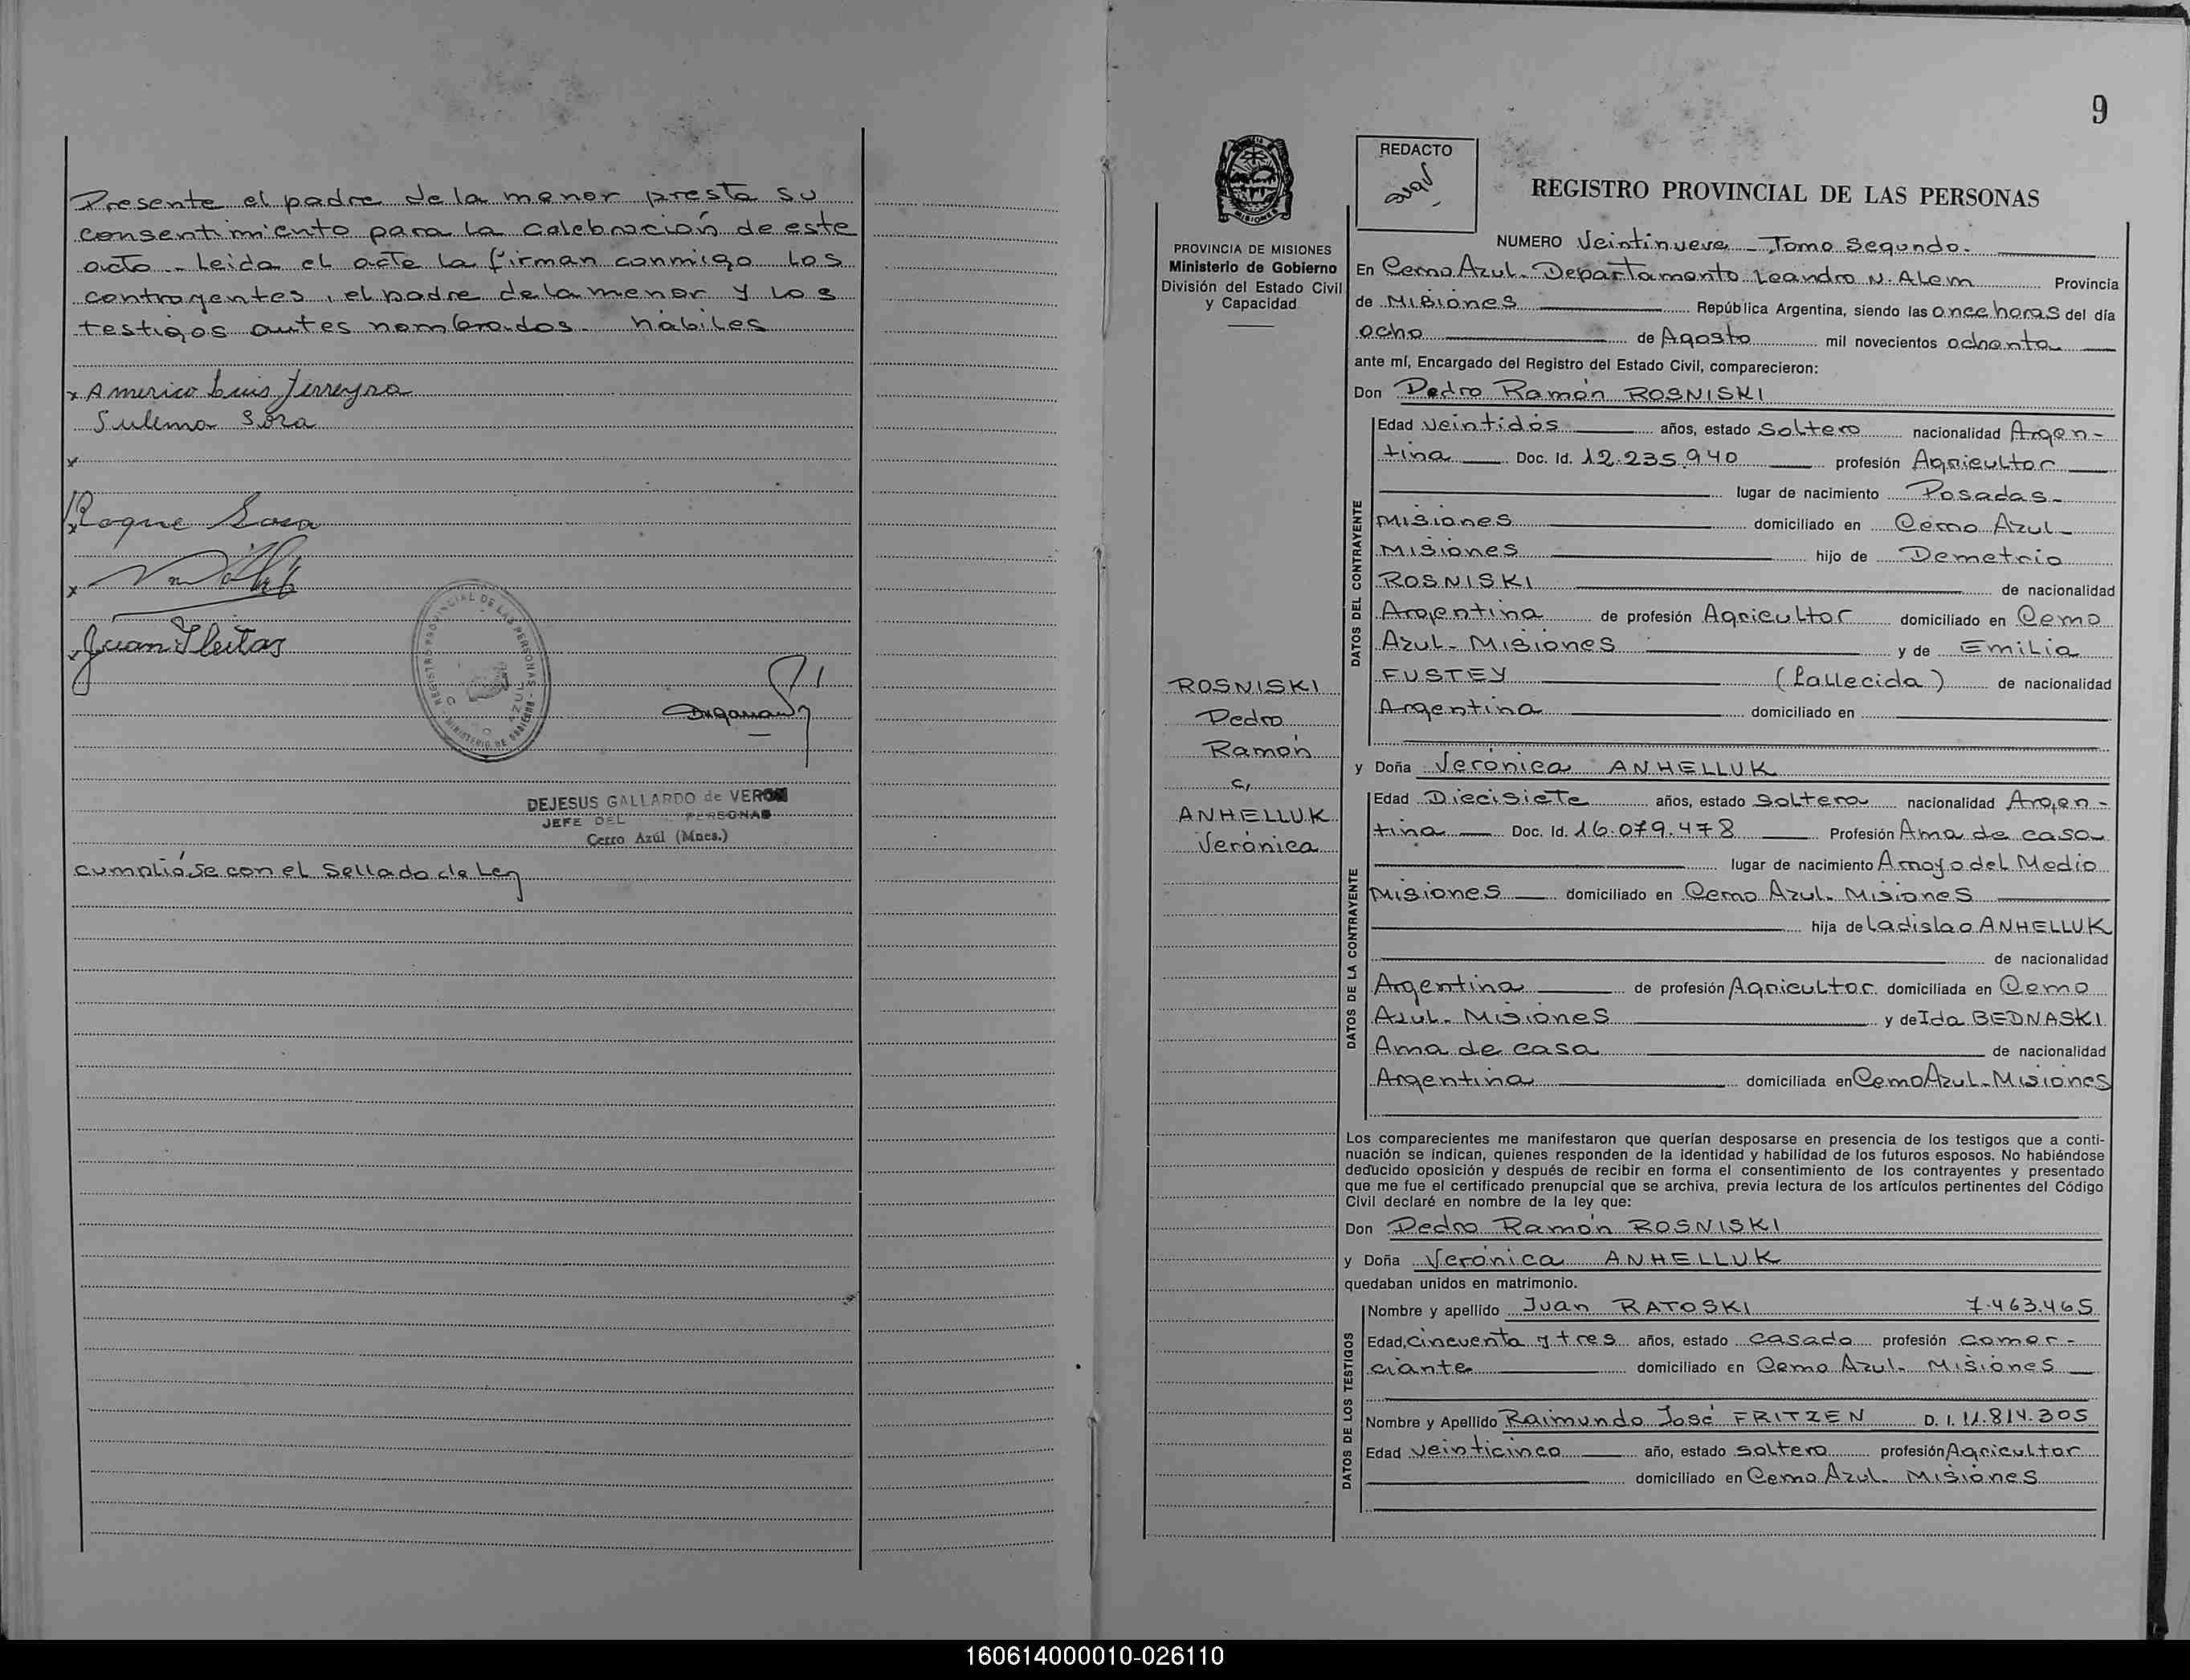 Presente el padre de la menor presta su
consentimiento para la celebración de este
acto - Leida el acte la firman conmigo los
contrayentes, el padre de la menor y los
testigos antes nombrados. hábiles
x Americo Luis Ferreyra
Sulema Sosa
x
x Roque Sosa
x
x Juan Fleitas
REGISTRO PROVINCIAL DE LAS PERSONAS
DEJESUS GALLARDO de VERON
JEFE DEL PERSONAS
Cerro Azúl (Mnes.)
Cumplióse con el Sellado de Ley
9
MISIONES
PROVINCIA DE MISIONES
Ministerio de Gobierno
División del Estado Civil
y Capacidad
ROSNISKI
Pedro
Ramón
c/
ANHELLUK
Verónica
REDACTO
REGISTRO PROVINCIAL DE LAS PERSONAS
NUMERO Veintinueve - Tomo Segundo.
En Cerro Azul - Departamento Leandro N. Alem Provincia
de Misiones República Argentina, siendo las once horas del día
ocho de Agosto mil novecientos ochenta
ante mí, Encargado del Registro del Estado Civil, comparecieron:
Don Pedro Ramón ROSNISKI
DATOS DEL CONTRAYENTE
Edad veintidós años, estado soltero nacionalidad Argen-
tina Doc. Id. 12.235.940 profesión Agricultor
lugar de nacimiento Posadas-
Misiones domiciliado en Cerro Azul-
Misiones hijo de Demetrio
ROSNISKI de nacionalidad
Argentina de profesión Agricultor domiciliado en Cerro
Azul- Misiones y de Emilia
FUSTEY (fallecida) de nacionalidad
Argentina domiciliado en
y Doña Verónica ANHELLUK
DATOS DE LA CONTRAYENTE
Edad Diecisiete años, estado soltera nacionalidad Argen-
tina Doc. Id. 16.079.478 Profesión Ama de casa
lugar de nacimiento Arroyo del Medio
Misiones domiciliado en Cerro Azul- Misiones
hija de Ladislao ANHELLUK
de nacionalidad
Argentina de profesión Agricultor domiciliada en Cerro
Azul- Misiones y de Ida BEDNASKI
Ama de casa de nacionalidad
Argentina domiciliada en Cerro Azul- Misiones
Los comparecientes me manifestaron que querían desposarse en presencia de los testigos que a conti-
nuación se indican, quienes responden de la identidad y habilidad de los futuros esposos. No habiéndose
deducido oposición y después de recibir en forma el consentimiento de los contrayentes y presentado
que me fue el certificado prenupcial que se archiva, previa lectura de los artículos pertinentes del Código
Civil declaré en nombre de la ley que:
Don Pedro Ramón ROSNISKI
y Doña Verónica ANHELLUK
quedaban unidos en matrimonio.
DATOS DE LOS TESTIGOS
Nombre y apellido Juan RATOSKI 7.463.465
Edad, cincuenta y tres años, estado casado profesión comer-
ciante domiciliado en Cerro Azul- Misiones
Nombre y Apellido Raimundo José FRITZEN D. I. 11.814.305
Edad veinticinco año, estado soltero profesión Agricultor
domiciliado en Cerro Azul- Misiones
160614000010-026110